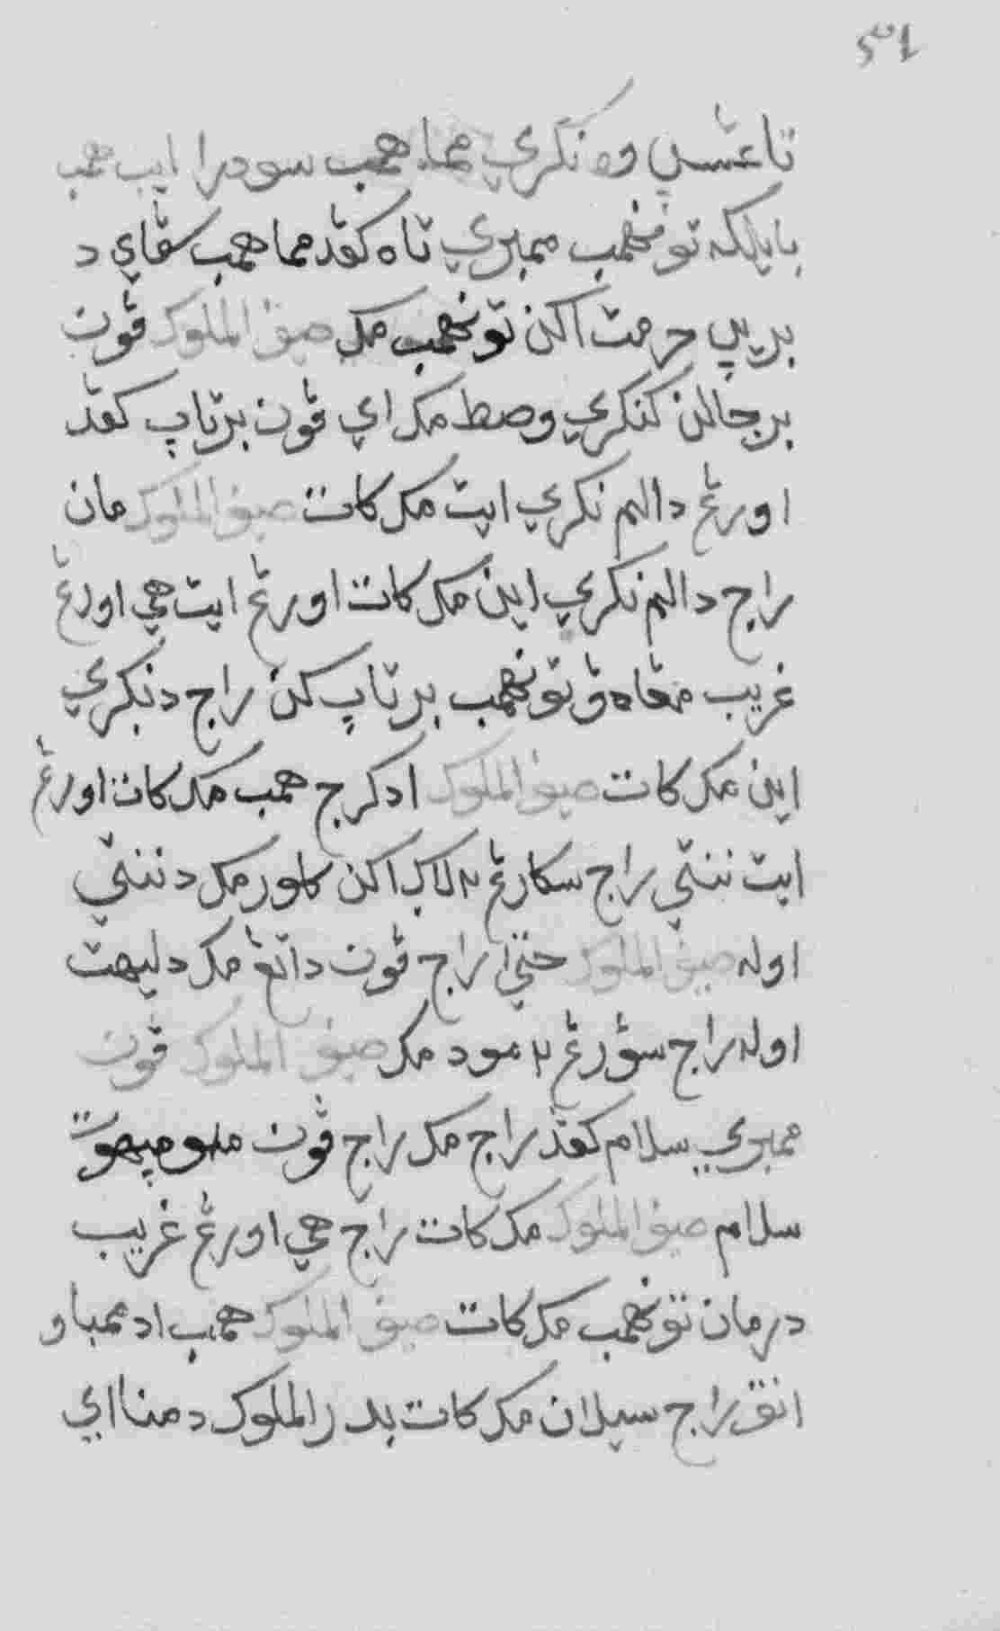 تاءنسي ده نكري مما همب سودرا ايب همب
باءيكله توهمب ممبري تاه كڤد مما همب سڤاي د
بريي حرمت اكن توهمب مك صيف الملوك ڤون
برجالن كنكري وصط مك اي ڤون برتاپ كڤد
اورڠ دالم نكري ايت مك كات صيف الملوك مان
راج دالم نكري اين مك كات اورڠ ايت هي اورڠ
غريب مڤاه ڤ توهمب برتاپ كن راج دنكري
اين مك كات صيف الملوك ادكرج همب مك كات اورڠ
ايت ننتي راج سكارڠ ٢ لاك اكن كلور مك دننتي
اوله صيف الملوك حتى راج ڤون داتڠ مك دليهت
اوله راج سؤرڠ ٢ مود مك صيف الملوك ڤون
ممبري سلام كڤد راج مك راج ڤون مپهوت
سلام صيف الملوك مك كات راج هي اورڠ غريب
درمان توهمب مك كات صيف الملوك همب اد ممباو
انق راج سيلان مك كات بدر الملوك دمنا اي